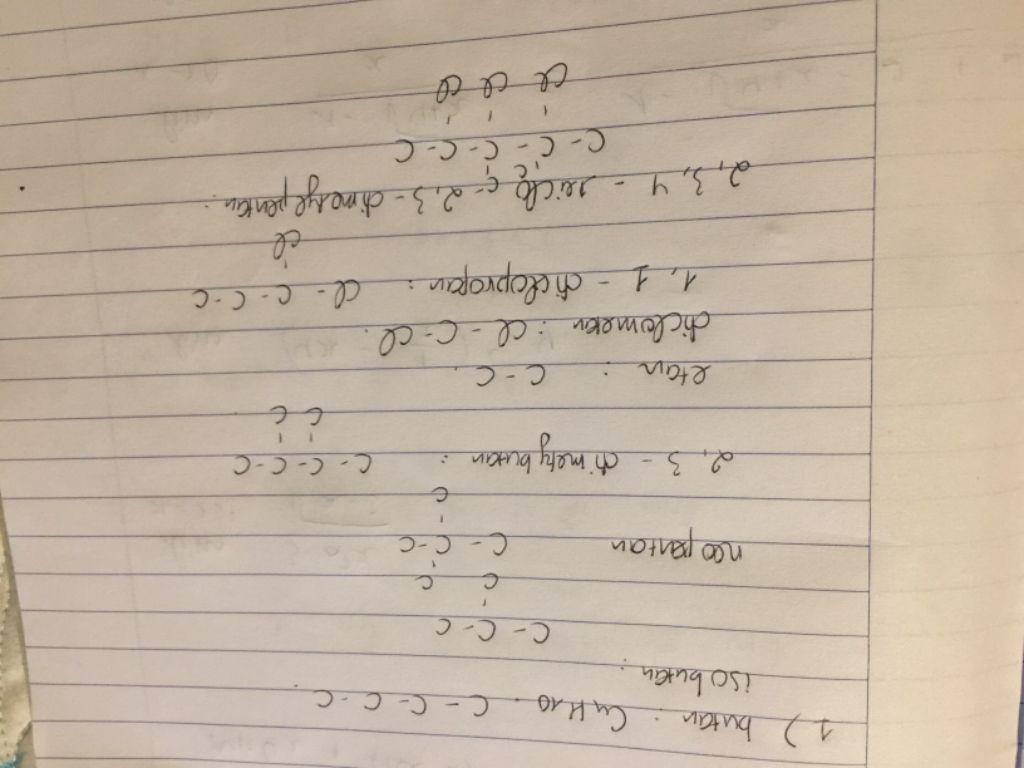 1) butan : C4H10. C - C - C - C.
iso butan :
C - C - C
C
C
neo pentan C - C - C
C
2, 3 - đimetylbutan : C - C - C - C
C C
etan : C - C.
điclometan : Cl - C - Cl.
1, 1 - điclopropan : Cl - C - C - C
Cl
2, 3, 4 - - 2,3 - đimetylpentan :
C C
C - C - C - C - C
Cl Cl Cl